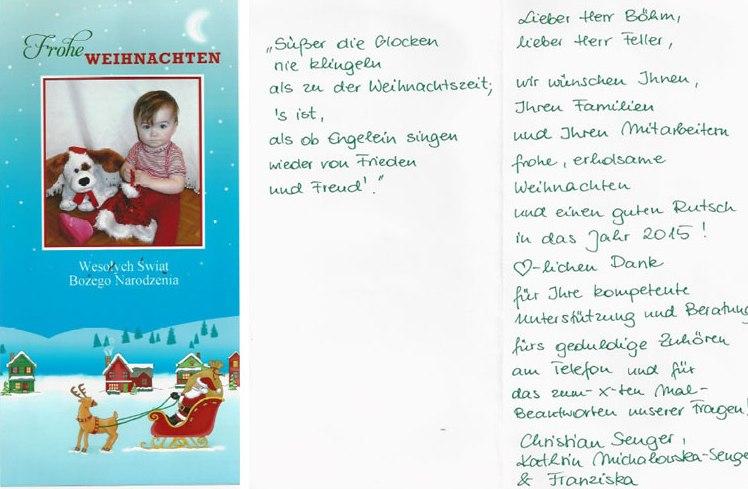 Frohe WEIHNACHTEN
Wesołych Świąt
Bożego Narodzenia
„Süßer die Glocken
nie klingeln
als zu der Weihnachtszeit;
's ist,
als ob Engelein singen
wieder von Frieden
und Freud'."
Lieber Herr Böhm,
lieber Herr Feller,
wir wünschen Ihnen,
Ihren Familien
und Ihren Mitarbeitern
frohe, erholsame
Weihnachten
und einen guten Rutsch
in das Jahr 2015!
♡-lichen Dank
für Ihre kompetente
Unterstützung und Beratung
fürs geduldige Zuhören
am Telefon und für
das zum-x-ten Mal-
Beantworten unserer Fragen!
Christian Senger,
Kathrin Michalowska-Senge
& Franziska